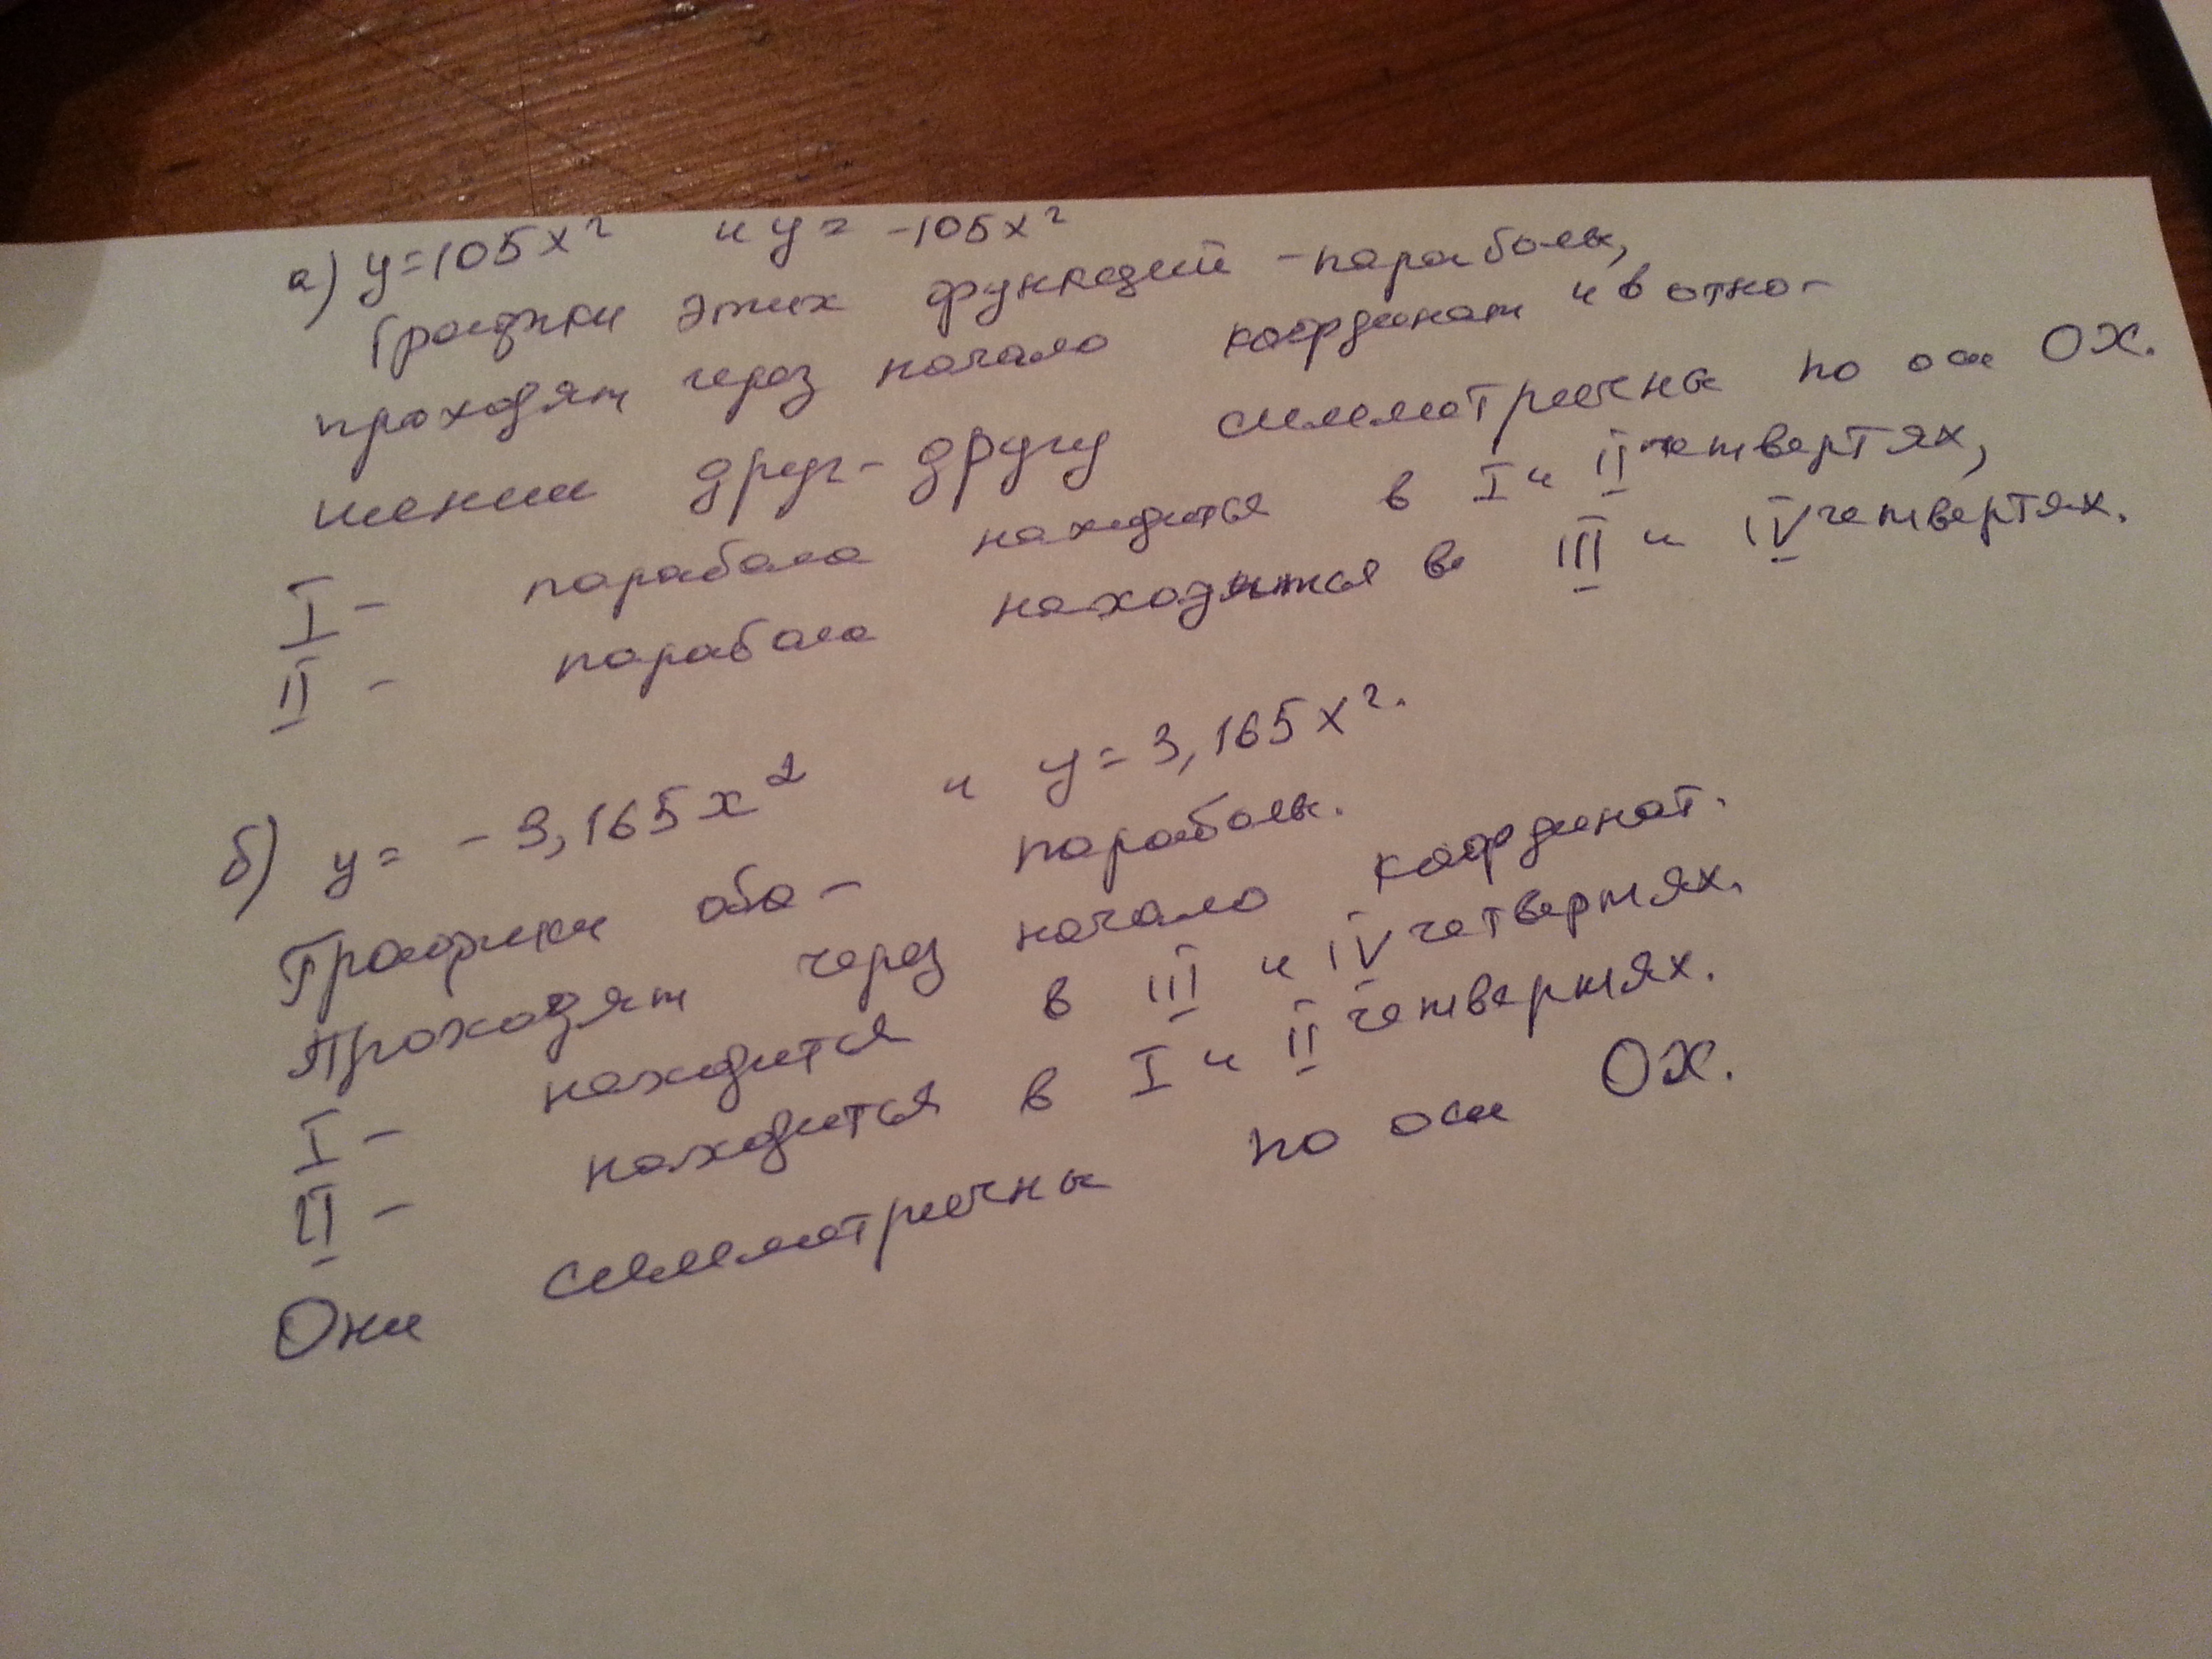 а) y=105x² и y= -105x²
Графики этих функций - параболы,
проходят через начало координат и в отно-
шении друг-другу симметричны по оси OX.
I - парабола находится в I и II четвертях,
II - парабола находится в III и IV четвертях.
б) y= -3,165x² и y=3,165x².
Графики оба - параболы.
Проходят через начало координат.
I - находится в III и IV четвертях.
II - находится в I и II четвертях.
Они симметричны по оси OX.